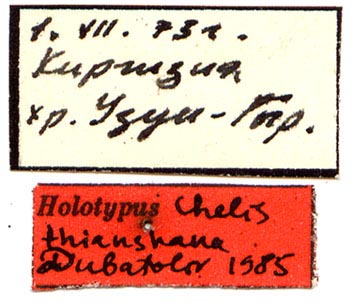 1. VII. 73г.
Киргизия
хр. Узун-Тыр.
Holotypus Chelis
thianshana
Dubatolov 1985